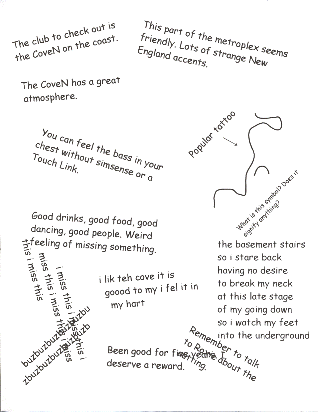 The club to check out is
the CoveN on the coast.
This part of the metroplex seems
friendly. Lots of strange New
England accents.
The CoveN has a great
atmosphere.
Popular tattoo
You can feel the bass in your
chest without simsense or a
Touch Link.
What is this symbol? Does it
signify anything?
Good drinks, good food, good
dancing, good people. Weird
feeling of missing something.
the basement stairs
so i stare back
having no desire
to break my neck
at this late stage
of my going down
so i watch my feet
into the underground
this i miss this
miss this i miss this i miss
i miss this i miss this i
i lik teh cove it is
goood to my i fel it in
my hart
buzbuzbuzbuzbuzbu
zbuzbuzbuzbuzbuzb
Been good for five years
deserve a reward.
Remember to talk
to Rome about the
meeting.